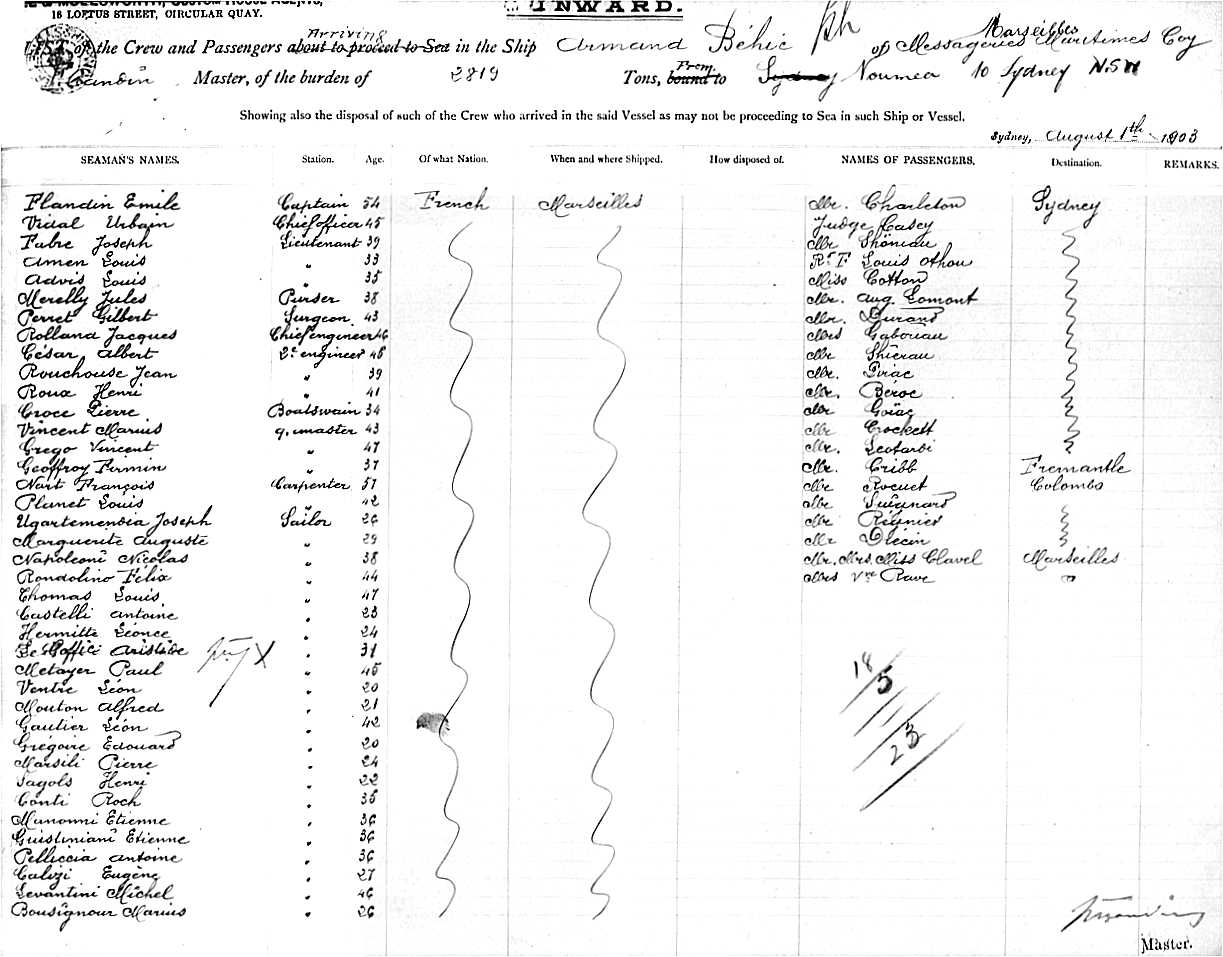 INWARD.
16 LOFTUS STREET, CIRCULAR QUAY.
Arriving
of the Crew and Passengers about to proceed to Sea in the Ship Armand Béhic of Messageries Maritimes Coy
Marseilles
Master, of the burden of 2819 Tons, bound to From Sydney Noumea to Sydney N.S.W
Showing also the disposal of such of the Crew who arrived in the said Vessel as may not be proceeding to Sea in such Ship or Vessel.
Sydney, August 1th 1903
SEAMAN'S NAMES. Station. Age. Of what Nation. When and where Shipped. How disposed of. NAMES OF PASSENGERS. Destination. REMARKS.
Flandin Emile Captain 54 French Marseilles Mr. Charleton Sydney
Vidal Urbain Chief officer 45 Judge Casey
Fabre Joseph Lieutenant 39 Mr Shöniau
Amen Louis " 33 Rt F Louis Othon
Advis Louis " 35 Miss Cotton
Merelly Jules Purser 38 Mr. Aug. Lomont
Perret Gilbert Surgeon 43 Mr. Durand
Rolland Jacques Chief engineer 46 Mrs Gaboriau
César Albert 2d engineer 48 Mr Shiérau
Rouchouse Jean " 39 Mr. Pirac
Roux Henri " 41 Mr. Béroc
Croce Pierre Boatswain 34 Mr Goïac
Vincent Marius q. master 43 Mr Crockett
Grego Vincent " 47 Mr. Leotardi
Geoffroy Firmin " 37 Mr. Cribb Fremantle
Nart François Carpenter 51 Mr Rocuet Colombo
Planet Louis " 42 Mr Suignard
Ugartemendia Joseph Sailor 26 Mr Régnier
Marguerite Auguste " 29 Mr Olécin
Napoleoni Nicolas " 38 Mr. Mrs. Miss Clavel Marseilles
Rondolino Félix " 44 Mrs Vve Rave "
Thomas Louis " 47
Castelli Antoine " 23
Hermitte Léonce " 24
Le Poffic Aristide X " 31
Metayer Paul " 45
Ventre Léon " 20
Mouton Alfred " 21
Gautier Léon " 42
Grégoire Edouard " 20
Marsili Pierre " 24
Sagols Henri " 22
Conti Roch " 35
Manonni Etienne " 36
Guistiniani Etienne " 36
Pelliccia Antoine " 36
Calizi Eugène " 27
Levantini Michel " 46
Bousignour Marius " 26
18
5
23
Master.